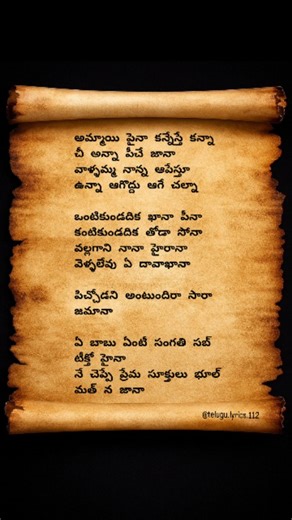 అమ్మాయి పైనా కన్నేస్తే కన్నా
చీ అన్నా పీచే జానా
వాళ్ళమ్మ నాన్న ఆపేస్తూ
ఉన్నా ఆగొద్దు ఆగే చల్నా
ఒంటికుండదిక ఖానా పీనా
కంటికుండదిక తోడా సోనా
వల్లగాని నానా హైరానా
వెళ్ళలేవు ఏ దావాఖానా
పిచ్చోడని అంటుందిరా సారా
జమానా
ఏ బాబు ఏంటీ సంగతి సబ్
టీక్తో హైనా
నే చెప్పే ప్రేమ సూక్తులు భూల్
మత్ న జానా
@telugu.lyrics.112